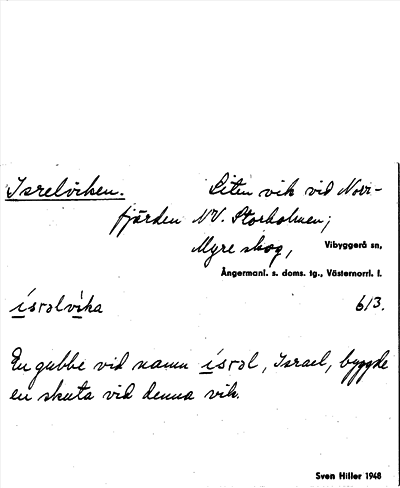 Isrelviken. Liten vik vid Norr-
fjärden NV. Storholmen;
Myre skog, Vibyggerå sn,
Ångermanl. s. doms. tg., Västernorrl. l.
ísrəlvi̱ka 6/3.
En gubbe vid namn ísrəl, Israel, byggde
en skuta vid denna vik.
Sven Hiller 1948